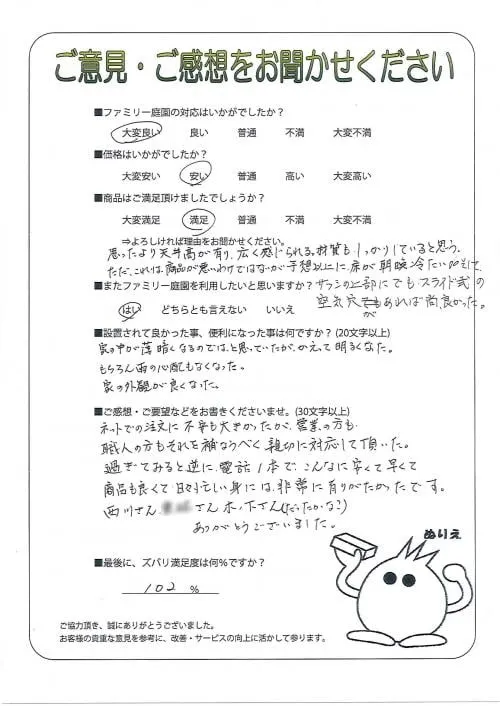 ご意見・ご感想をお聞かせください
■ファミリー庭園の対応はいかがでしたか?
大変良い 良い 普通 不満 大変不満
■価格はいかがでしたか?
大変安い 安い 普通 高い 大変高い
■商品はご満足頂けましたでしょうか?
大変満足 満足 普通 不満 大変不満
⇒よろしければ理由をお聞かせください。
思ったより天井高が有り、広く感じられる。材質もしっかりしていると思う。
ただ、これは、商品が悪いわけではないが予想以上に床が朝晩冷たい
サッシの上部にでもスライド式の
空気穴があれば尚良かった。
■またファミリー庭園を利用したいと思いますか?
はい どちらとも言えない いいえ
■設置されて良かった事、便利になった事は何ですか? (20文字以上)
家の中が薄暗くなるのでは、と思っていたが、かえって明るくなた。
もちろん雨の心配もなくなった。
家の外観が良くなった。
■ご感想・ご要望などをお書きくださいませ。(30文字以上)
ネットでの注文に不安も大きかったが、営業の方も
職人の方もそれを補なうべく親切に対応して頂いた。
過ぎてみると逆に、電話1本で、こんなに安くて早くて
商品も良くて日々忙しい身には、非常に有りがたかったです。
西川さん さん 木ノ下さん(だったかな?)
ありがとうございました。
■最後に、ズバリ満足度は何%ですか?
102 %
ぬりえ
ご協力頂き、誠にありがとうございました。
お客様の貴重な意見を参考に、改善・サービスの向上に活かして参ります。